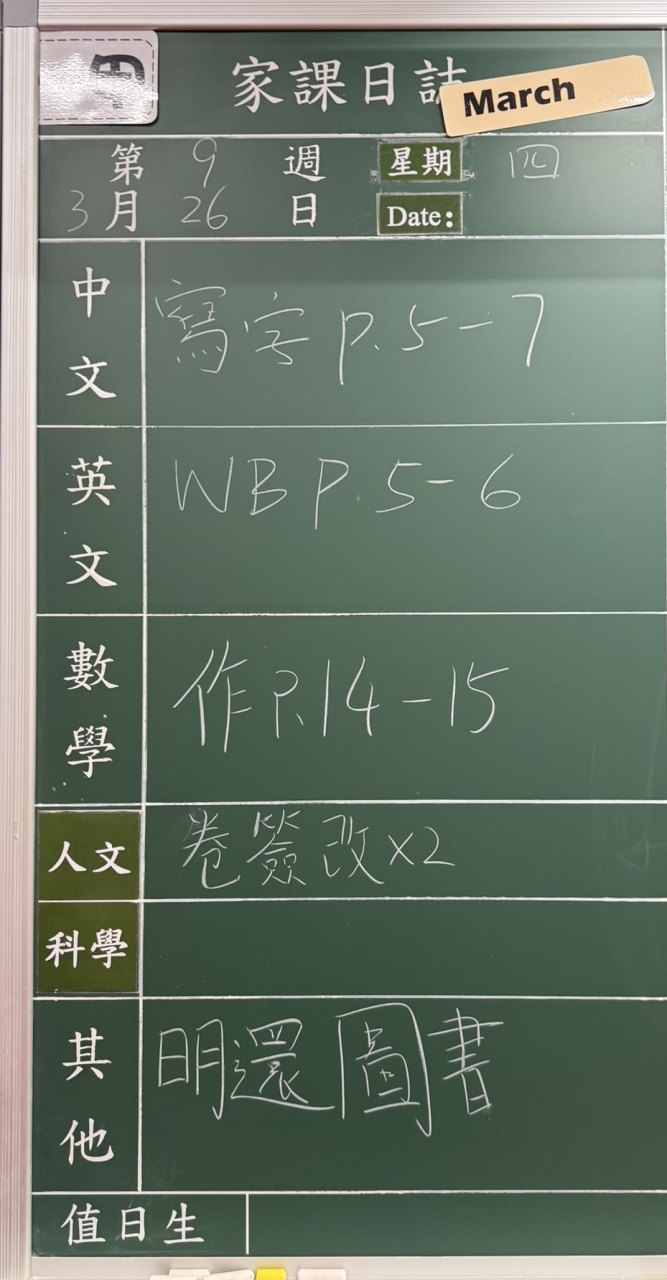 家課日誌
March
第 9 週 星期 四
3 月 26 日 Date:
中文 寫字 P.5-7
英文 WB P.5-6
數學 作 P.14-15
人文 卷簽改×2
科學
其他 明還圖書
值日生